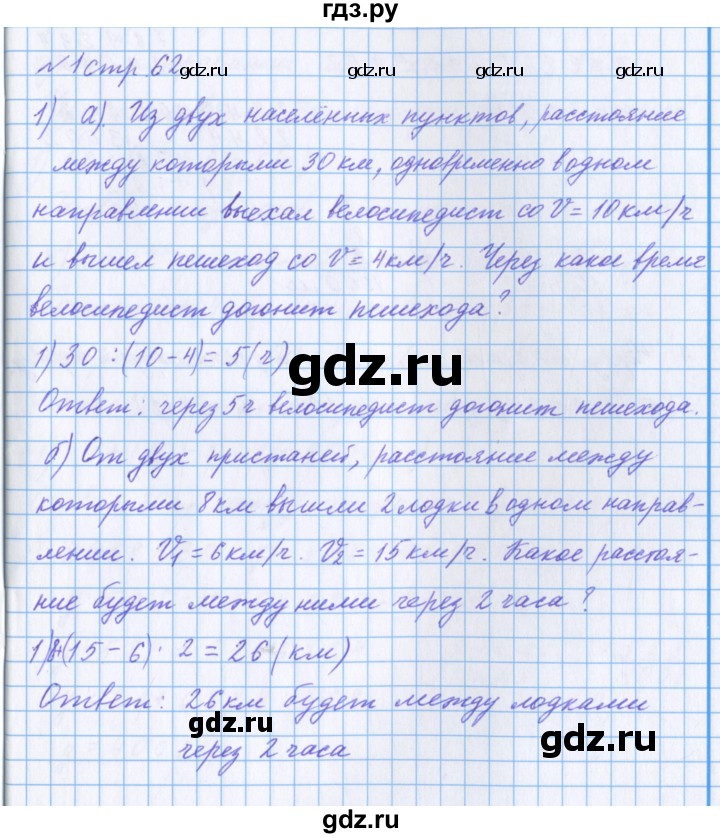 гдз.ру
№1 стр 62
gdz.ru gdz.ru
1) а) Из двух населённых пунктов, расстояние
между которыми 30 км, одновременно в одном
направлении выехал велосипедист со V = 10 км/ч
gdz.ru gdz.ru
и вышел пешеход со V = 4 км/ч. Через какое время
велосипедист догонит пешехода?
1) 30 : (10 - 4) = 5 (ч)
gdz.ru
Ответ: через 5 ч велосипедист догонит пешехода.
б) От двух пристаней, расстояние между
gdz.ru gdz.ru
которыми 8 км вышли 2 лодки в одном направ-
лении. V₁ = 6 км/ч. V₂ = 15 км/ч. Какое расстоя-
ние будет между ними через 2 часа?
gdz.ru gdz.ru
1) 8+(15 - 6) · 2 = 26 (км)
Ответ: 26 км будет между лодками
gdz.ru gdz.ru
через 2 часа
gdz.ru